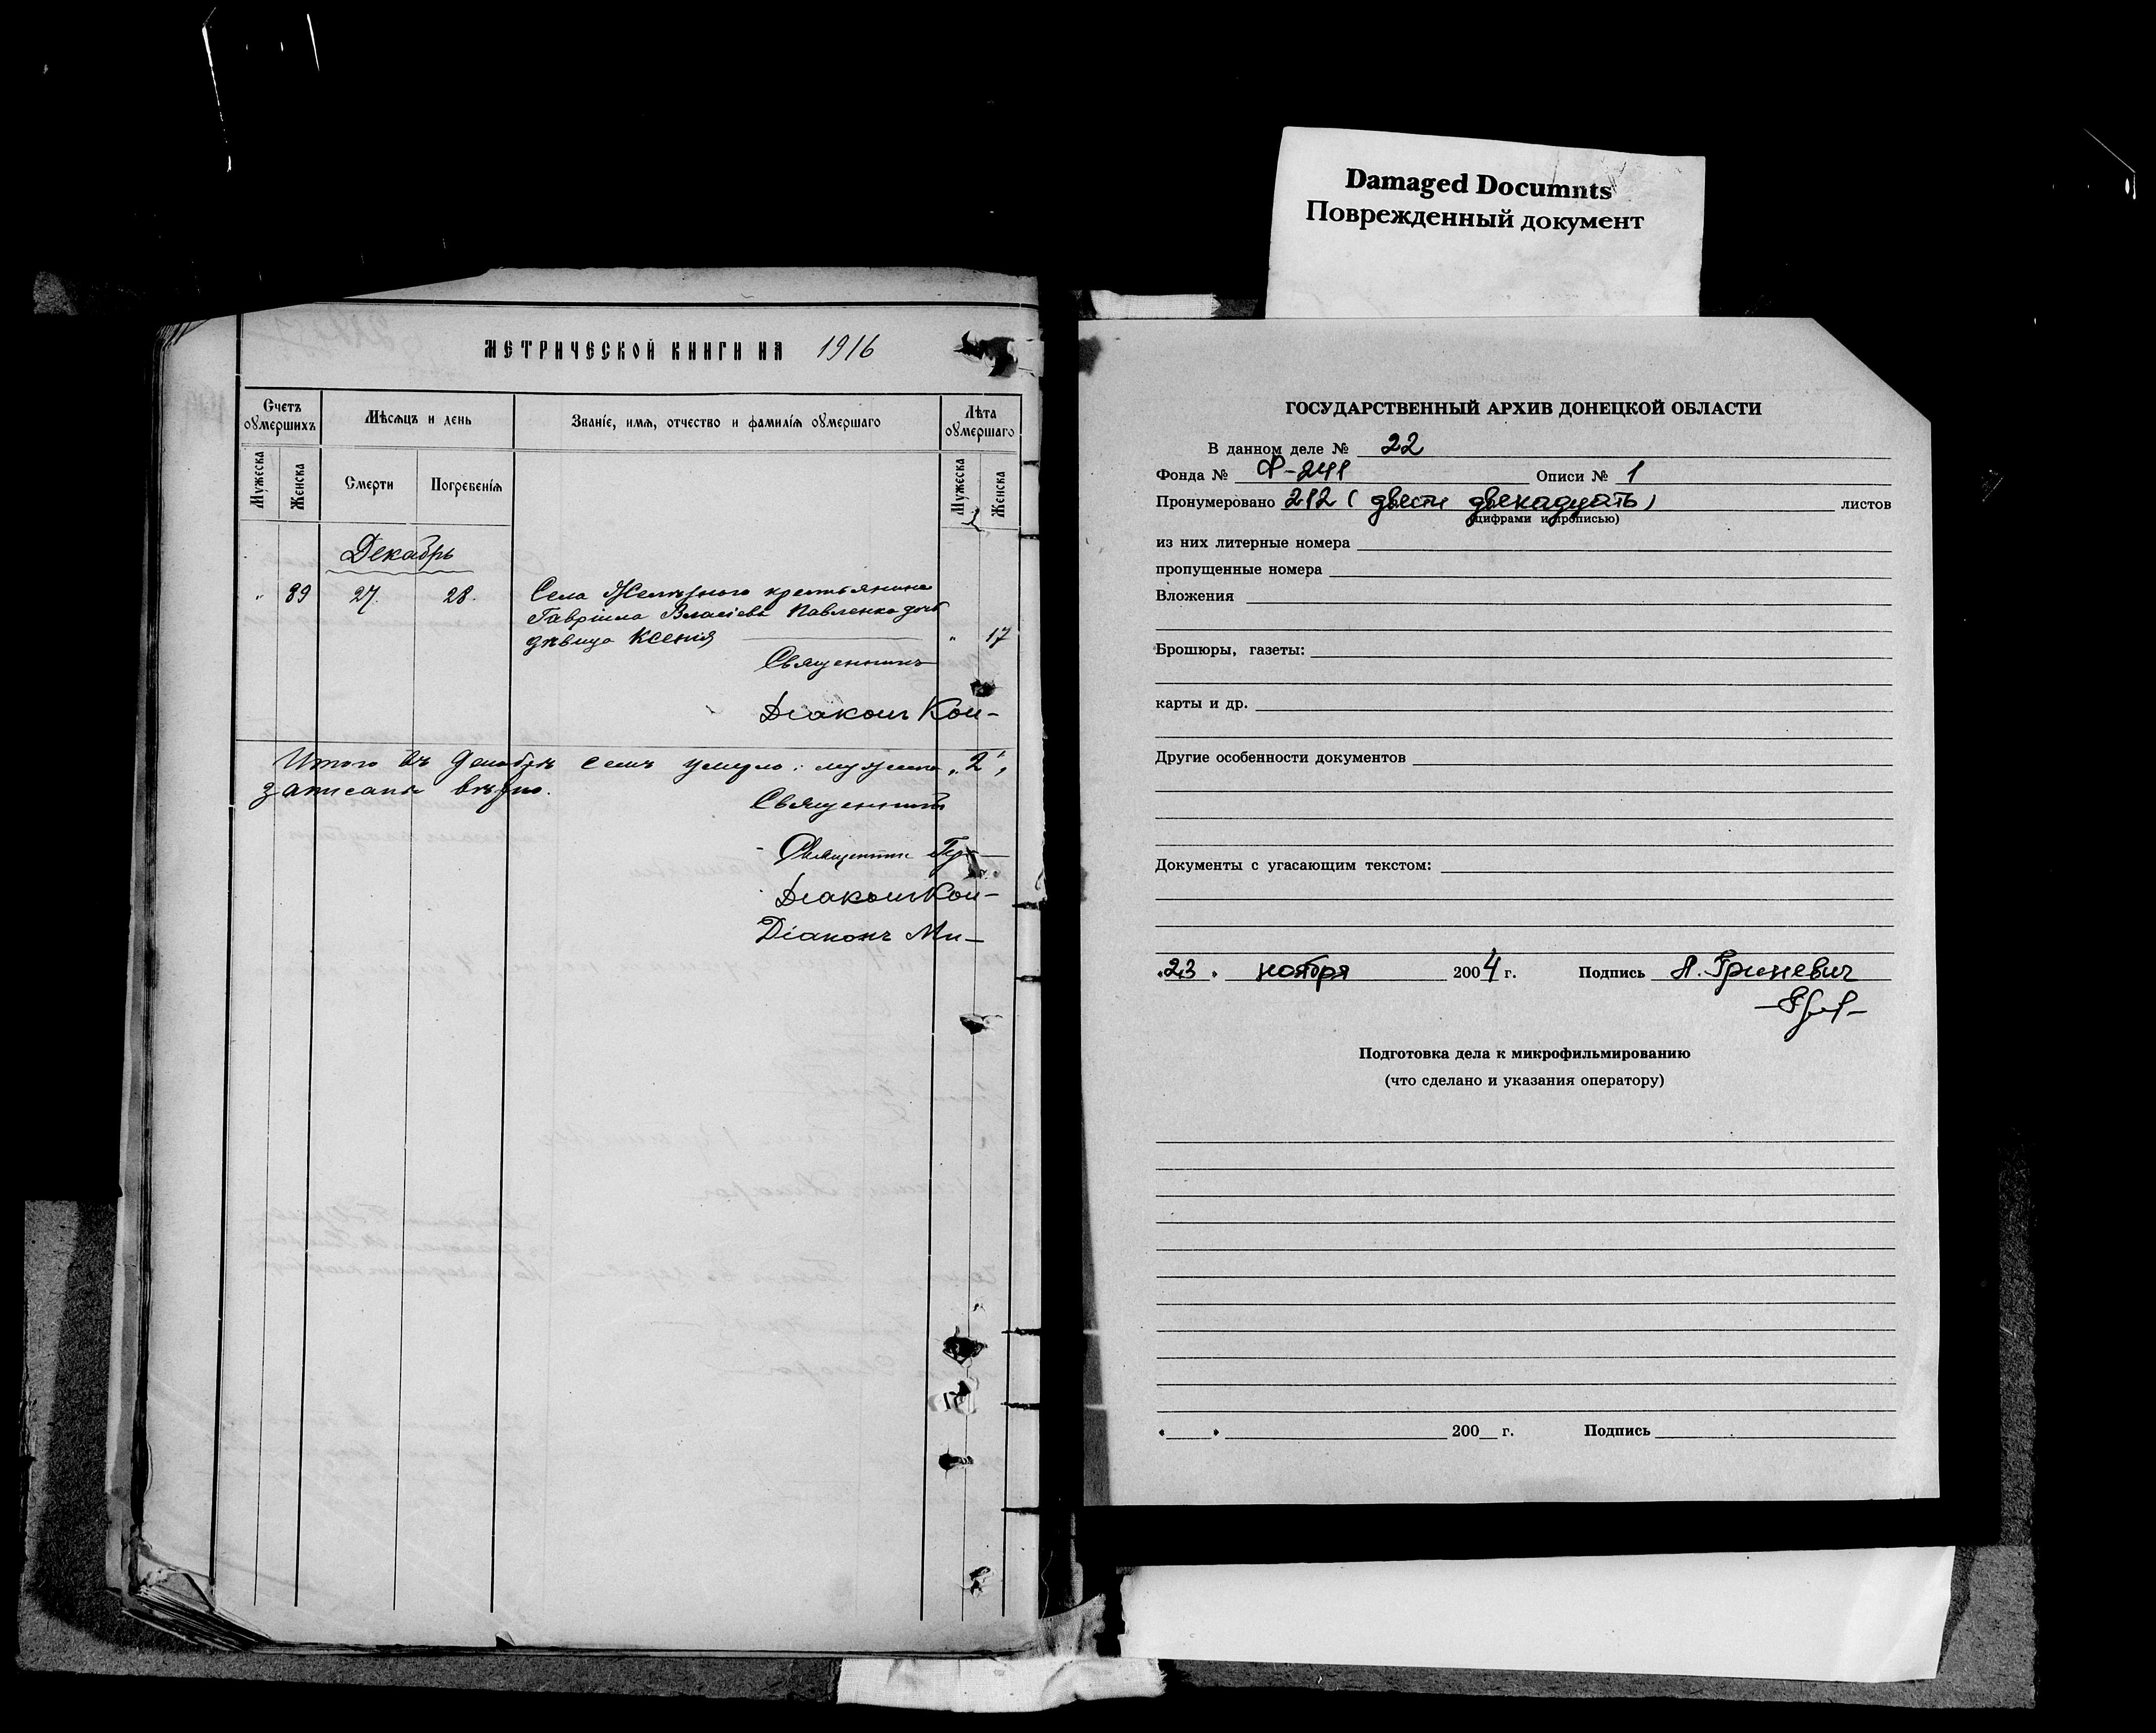 Damaged Documnts
Поврежденный документ
МЕТРИЧЕСКОЙ КНИГИ НА 1916
Счетъ оумершихъ
Мѣсяцъ и день
Званіе, имя, отчество и фамилія оумершаго
Лѣта оумершаго
Мужеска
Женска
Смерти
Погребенія
Мужеска
Женска
Декабрь
" 39 27. 28. Села Желѣзнаго крестьянина
Гавріила Власіева Павленко дочь
дѣвица Ксенія " 17
Священникъ
Діаконъ Кон-
Итого въ Декабрѣ семъ умерло: мужска " 2",
записаны вѣрно.
Священникъ
Священникъ
Діаконъ Кон-
Діаконъ Ми-
ГОСУДАРСТВЕННЫЙ АРХИВ ДОНЕЦКОЙ ОБЛАСТИ
В данном деле № 22
Фонда № Ф-241 Описи № 1
Пронумеровано 212 (двести двенадцать) листов
(цифрами и прописью)
из них литерные номера
пропущенные номера
Вложения
Брошюры, газеты:
карты и др.
Другие особенности документов
Документы с угасающим текстом:
«23» ноября 2004 г. Подпись Л. Гриневич
Подготовка дела к микрофильмированию
(что сделано и указания оператору)
« » 200 г. Подпись